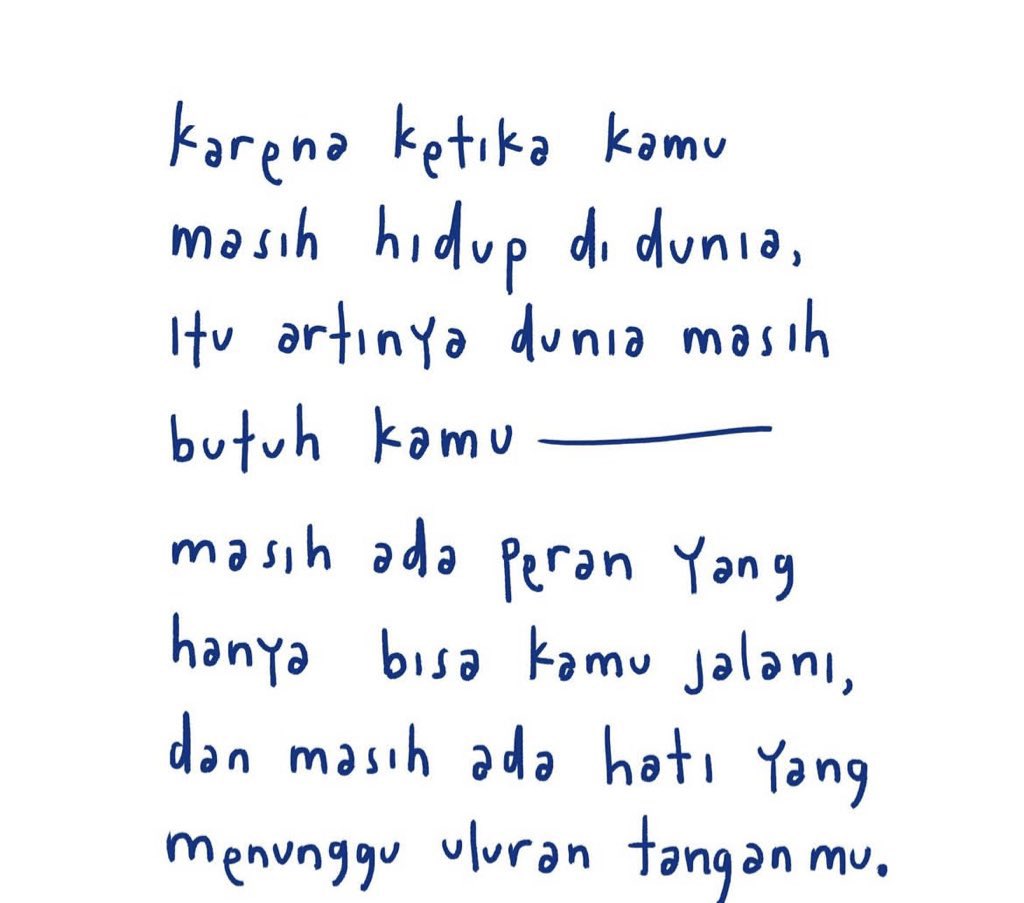 karena ketika kamu
masih hidup di dunia,
Itu artinya dunia masih
butuh kamu —
masih ada peran yang
hanya bisa kamu jalani,
dan masih ada hati yang
menunggu uluran tanganmu.